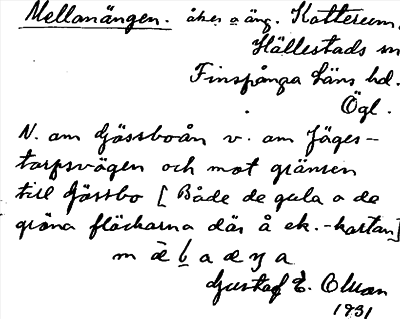 Mellanängen. åker o äng. Kottereum.
Hällestads sn
Finspånga läns hd.
Ögl.
N. om Gässboån v. om Jäges-
torpsvägen och mot gränsen
till Gässbo [Både de gula o de
gröna fläckarna där å ek.-kartan]
Gustaf E. Olson
1931